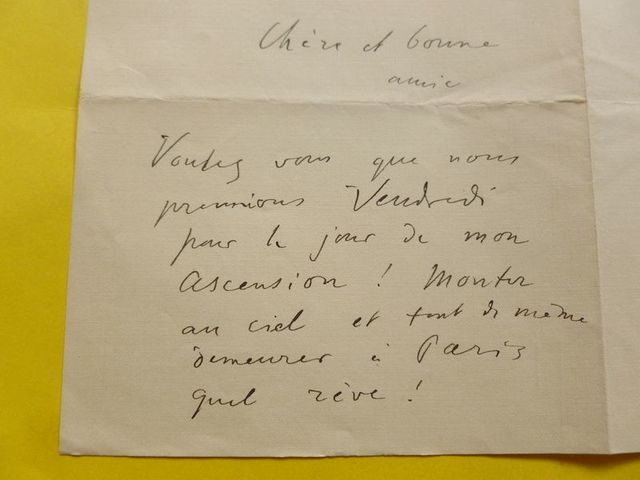 Chère et bonne
amie
Voulez vous que nous
prennions Vendredi
pour le jour de mon
Ascension ! Monter
au ciel et tout de même
demeurer à Paris
quel rêve !